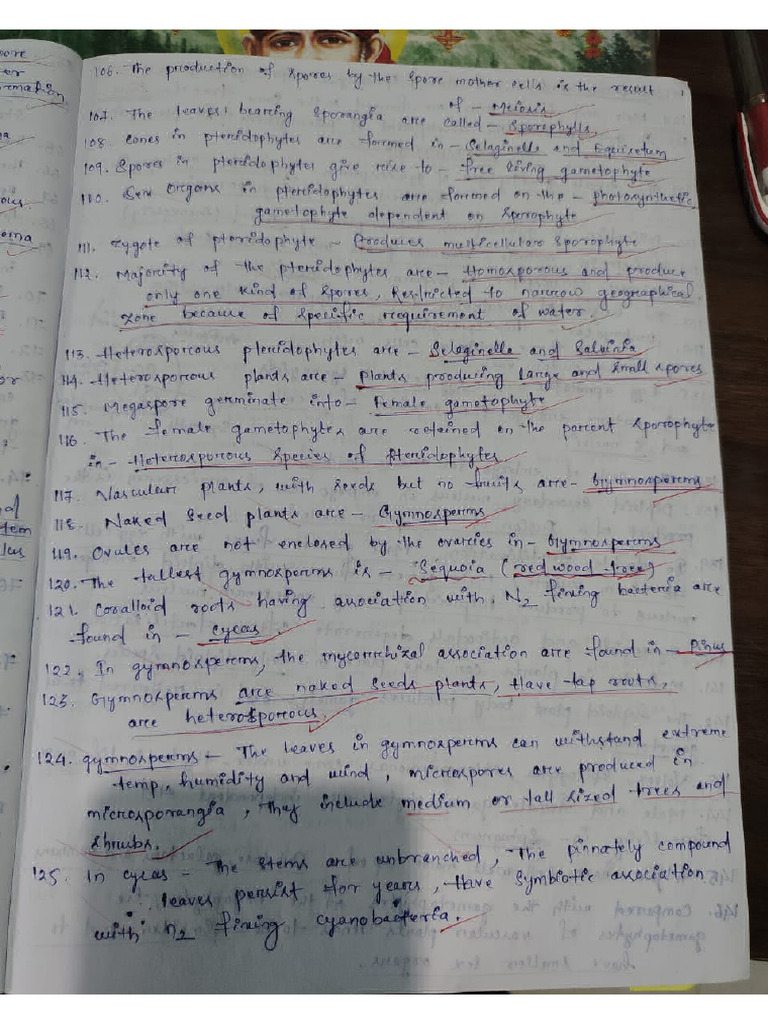 106. The production of spores by the spore mother cells is the result
of - Meiosis
107. The leaves bearing sporangia are called - Sporophylls.
108. Cones in pteridophytes are formed in - Selaginella and Equisetum
109. Spores in pteridophytes give rise to - free living gametophyte
110. Sex organs in pteridophytes are formed on the - photosynthetic
gametophyte dependent on sporophyte
111. Zygote of pteridophyte - Produces multicellular sporophyte
112. Majority of the pteridophytes are - Homosporous and produce
only one kind of spores, Restricted to narrow geographical
zone because of specific requirement of water.
113. Heterosporous pteridophytes are - Selaginella and Salvinia
114. Heterosporous plants are - Plants producing large and small spores
115. Megaspore germinate into - Female gametophyte
116. The female gametophytes are retained on the parent sporophyte
in - Heterosporous species of pteridophytes
117. Vascular plants, with seeds but no fruits are - Gymnosperms
118. Naked seed plants are - Gymnosperms
119. Ovules are not enclosed by the ovaries in - Gymnosperms
120. The tallest gymnosperms is - Sequoia (red wood tree)
121. Coralloid roots having association with N2 fixing bacteria are
found in - cycas.
122. In gymnosperms, the mycorrhizal association are found in - Pinus
123. Gymnosperms are naked seeds plants, Have tap roots,
are heterosporous.
124. gymnosperms - The leaves in gymnosperms can withstand extreme
temp, humidity and wind, microspores are produced in
microsporangia, They include medium or tall sized trees and
shrubs.
125. In cycas - The stems are unbranched, The pinnately compound
leaves persist for years, Have symbiotic association
with N2 fixing cyanobacteria.